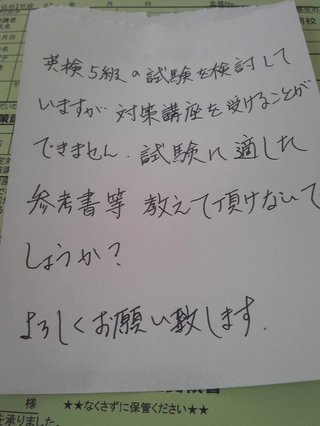 英検5級の試験を検討して
いますが対策講座を受けることが
できません. 試験に適した
参考書等 教えて頂けないで
しょうか?
よろしくお願い致します.
様 ★★なくさずに保管ください★★
を承りました。